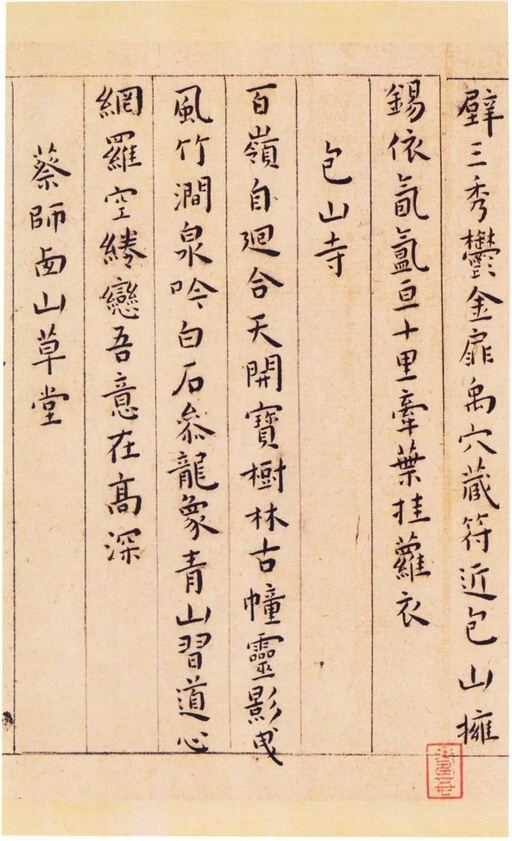 壁三秀鬱金扉禹穴藏符近包山擁
錫依氤氳亘十里牽葉挂蘿衣
包山寺
百嶺自廻合天開寶樹林古幢靈影曵
風竹澗泉吟白石叅龍象青山習道心
網羅空綣戀吾意在髙深
蔡師西山草堂